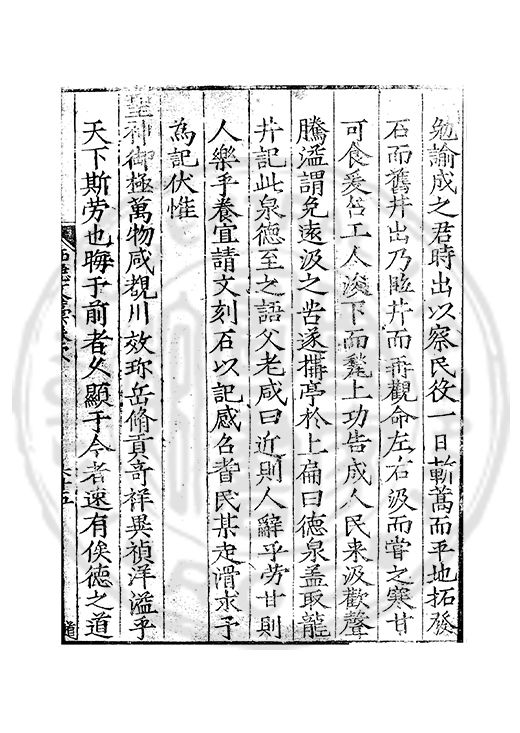 勉諭成之君時出以察民役一日斬萬而平地拓發
石而舊井出乃臨井而再觀命左右汲而嘗之寒甘
可食爰召工人濬下而甃上功告成人民來汲歡聲
騰溢謂免遠汲之苦遂搆亭於上扁曰德泉盖取龍
井記此泉德至之語父老咸曰近則人辭乎勞甘則
人樂乎養宜請文刻石以記感名耆民某走滑求予
為記伏惟
聖神御極萬物咸覩川效珎岳脩貢奇祥異禎洋溢乎
天下斯勞也晦于前者久顯于今者速有俟德之道
道